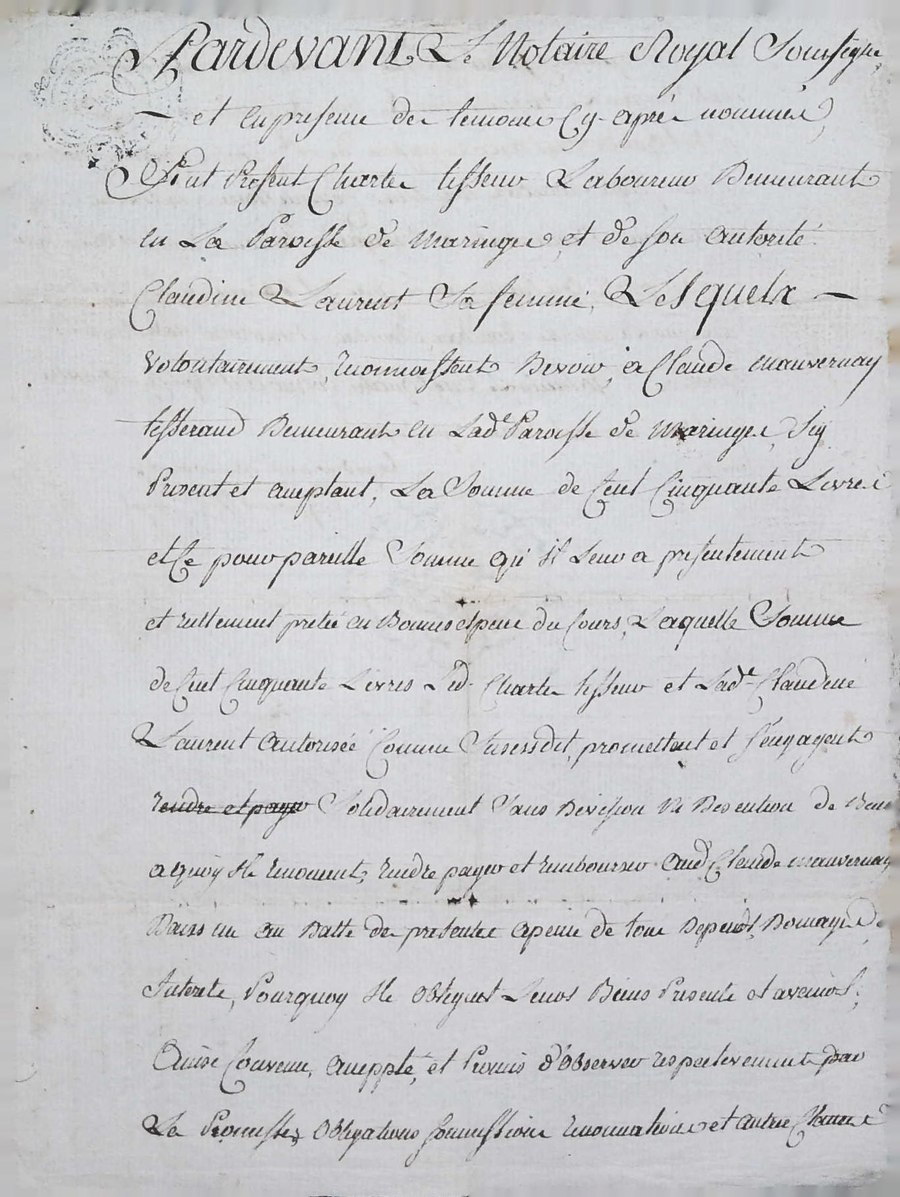 Pardevant Le Notaire Royal Soussigne
et en presence des temoins Cy aprés nommés
fut Present Charles tisseur Laboureur Demeurant
en La Paroisse de Maringes et de son autorité
Claudine Laurent Sa femme, Lesquels
volontairement, reconnoissent Devoir, a Claude mauvernay
tisserand Demeurant en Lad.e Paroisse de Maringes, Icy
Present et acceptant, La Somme de Cent Cinquante Livres
et Ce pour pareille Somme qu'il Leur a presentement
et reellement preté en Bonnes especes du Cours, Laquelle Somme
de Cent Cinquante Livres Led. Charles tisseur et Lad.e Claudine
Laurent autorisée Comme Susdit, promettent et s'engagent
rendre et payer Solidairement Sans Division Ni
a quoy Ils renoncent, rendre payer et rembourser aud. Claude mauvernay
Dans un an Datte des presentes a peine de tous Depends, Domages
Interets, Pourquoy Ils obligent Leurs Biens Presents et avenirs,
Ainsi Convenu, accepté, et Promis d'observer respectivement par
Les Promesses obligations soumissions renonciations et autres Clauses